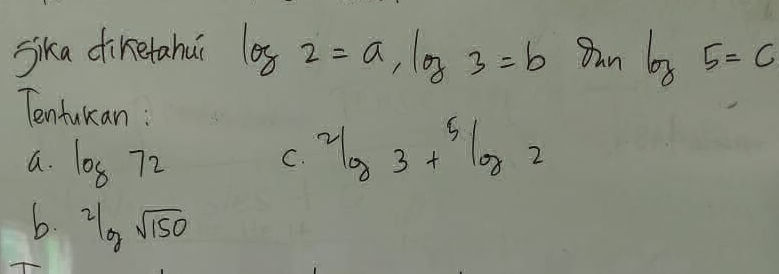 Jika diketahui log 2 = a, log 3 = b dan log 5 = c
Tentukan :
a. log 72
c. ²log 3 + ⁵log 2
b. ²log √150